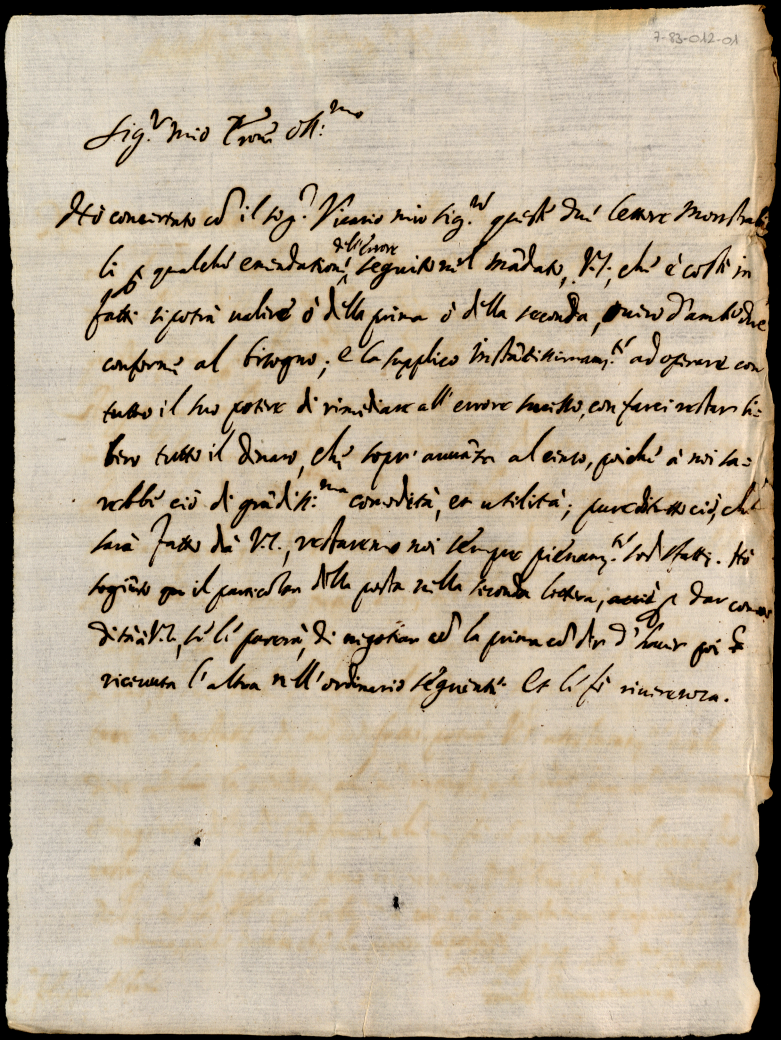 7-83-012-01
Sig.r mio Prone oss.mo
Hò concertato cõ il sig.r Vicario mio sig.re queste due lettere monstrabi
li p qualche emendatione dell'errore seguito nel mãdato, V.S., che è costì in
fatti si potrà valere ò della prima ò della seconda, overo d'ambedue
conforme al bisogno; e la supplico instãtissimam.te ad operare con
tutto il suo potere di rimediare all'errore sudetto, con farci restar li=
bero tutto il denaro, che sopr'avanza al censo, poiché à noi sa=
rebbe ciò di grãdiss.ma comodità, et utilità; pure di tutto ciò, che
sarà fatto dà V.S., restaremo noi sẽpre pienam.te sodisfatti. Hò
sogiũto quel particolar della posta nella seconda lettera, acciò p dar como
dità à V.S., se li parerà, di negotiar cõ la prima cõ dir d'haver poi
ricevuta l'altra nell'ordinario seguente. Et li fò riverenza.